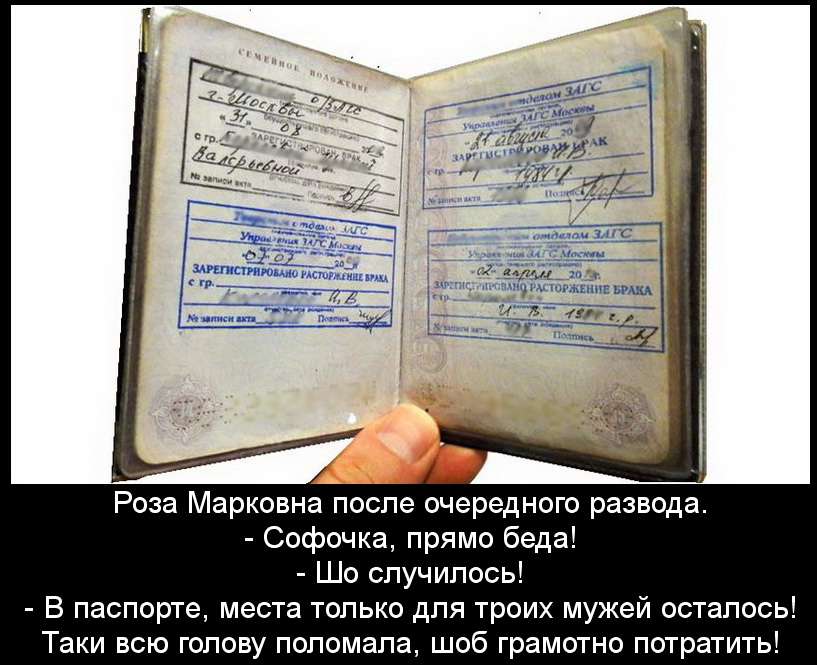 СЕМЕЙНОЕ ПОЛОЖЕНИЕ
ОЗАГС
г. Москвы
"31" 08 20
ЗАРЕГИСТРИРОВАН БРАК
с гр.
Валерьевной
№ записи акта
Подпись
отделом ЗАГС
Управления ЗАГС Москвы
"07" 07 20
ЗАРЕГИСТРИРОВАНО РАСТОРЖЕНИЕ БРАКА
с гр.
И. В.
№ записи акта Подпись
отделом ЗАГС
Управления ЗАГС Москвы
"21" августа 20
ЗАРЕГИСТРИРОВАН БРАК
с гр. И.В.
г.р.
№ записи акта Подпись
отделом ЗАГС
Управления ЗАГС Москвы
"02" апреля 20
ЗАРЕГИСТРИРОВАНО РАСТОРЖЕНИЕ БРАКА
с гр.
И. В. г.р.
№ записи акта
Подпись
Роза Марковна после очередного развода.
- Софочка, прямо беда!
- Шо случилось!
- В паспорте, места только для троих мужей осталось!
Таки всю голову поломала, шоб грамотно потратить!